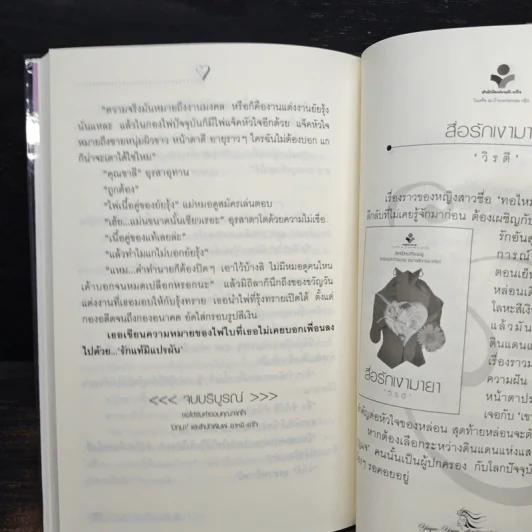 “ความจริงมันหมายถึงงานมงคล หรือก็คืองานแต่งงานยัยรุ้ง
นั่นแหละ แล้วในกองไพ่ปัจจุบันก็มีไพ่แจ็คหัวใจอีกด้วย แจ็คหัวใจ
หมายถึงชายหนุ่มผิวขาว หน้าตาดี อายุราวๆ ใครฉันไม่ต้องบอก แก
ก็น่าจะเดาได้ใช่ไหม”
“คุณชาลี” อุรสาอุทาน
“ถูกต้อง”
“ไพ่เนื้อคู่ของยัยรุ้ง” แม่หมอดูสมัครเล่นตอบ
“เฮ้ย...แม่นขนาดนั้นเชียวเธอะ” อุรสาตาโตด้วยความไม่เชื่อ
“เนื้อคู่ของแท้เลยล่ะ”
“แล้วทำไมแกไม่บอกยัยรุ้ง”
“แหม...คำทำนายก็ต้องปิดๆ เอาไว้บ้างสิ ไม่มีหมอดูคนไหน
เค้าบอกจนหมดเปลือกหรอกนะ” แล้วมิถิลาก็นึกถึงของขวัญวัน
แต่งงานที่เธอมอบให้กับรุ้งทราย เธอนำไพ่ที่รุ้งทรายเปิดได้ ตั้งแต่
กองอดีตจนถึงกองอนาคต อัดใส่กรอบรูปสีเงิน
เธอเขียนความหมายของไพ่ใบที่เธอไม่เคยบอกเพื่อนลง
ไปด้วย...‘รักแท้มีแปรผัน’
<<< จบบริบูรณ์ >>>
สื่อรักเงามา
‘วิรตี’
เรื่องราวของหญิงสาวชื่อ ‘ทอไหม
ลึกลับที่ไม่เคยรู้จักมาก่อน ต้องเผชิญกับ
รักอันส
การณ์
ตอนเย็น
หล่อนเดิ
โลหะสีเงิน
แล้วมัน
ดินแดนแ
เรื่องราวม
ความฝัน
หน้าตาปร
เจอกับ ‘เขา
สื่อรักเงามายา
สำคัญต่อหัวใจของหล่อน สุดท้ายหล่อนจะตั
หากต้องเลือกระหว่างดินแดนแห่งแส
คนนั้นเป็นผู้ปกครอง กับโลกปัจจุบั
รอคอยอยู่